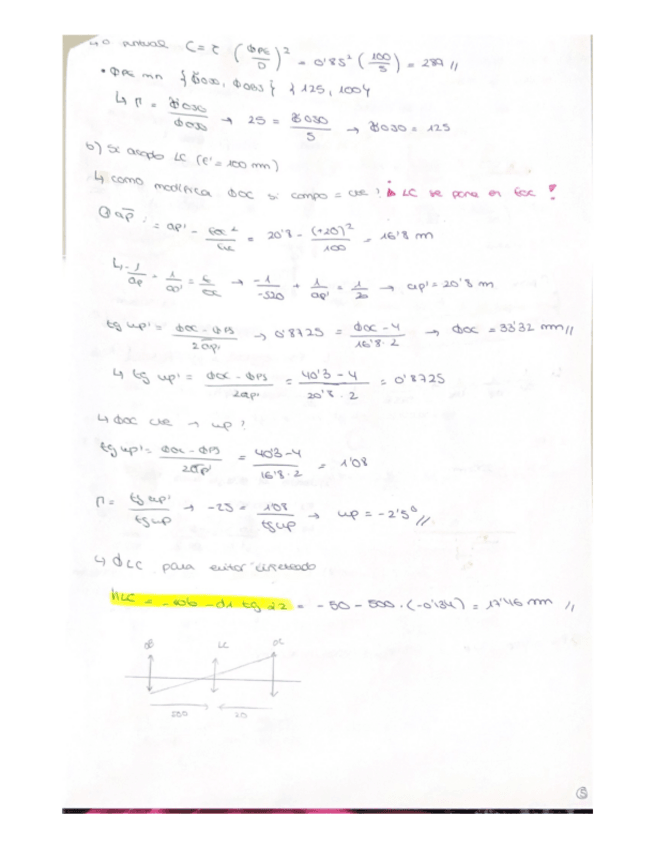 ↳o puntual C = τ (ΦPE / D)² = 0'85² (100/5) = 289 //
• ΦPE min { ΦOBJ } { 125, 100 }
↳ Γ = → 25 = / 5 → = 125
b) Si acoplo LC (f' = 100 mm)
↳ como modifica ΦOC si campo = cte ? LC se pone en foc !
ap' = ap' - foc² / = 20'8 - (+20)² / 100 = 16'8 m
↳ -1/ap + 1/ap' = → -1/-520 + 1/ap' = 1/20 → ap' = 20'8 m
tg wp' = ΦOC - ΦPS / 2ap' → 0'8725 = ΦOC - 4 / 16'8·2 → ΦOC = 33'32 mm //
↳ tg wp' = ΦOC - ΦPS / 2ap' = 40'3 - 4 / 20'8·2 = 0'8725
↳ ΦOC cte → wp ?
tg wp' = ΦOC - ΦPS / 2ap' = 40'3 - 4 / 16'8·2 = 1'08
Γ = tg wp' / tg wp → -25 = 1'08 / tg wp → wp = -2'5° //
↳ ΦLC para evitar viñeteado
hLC = - - d1 tg = -50 - 500·(-0'134) = 17'46 mm //
OB LC OC
20
5